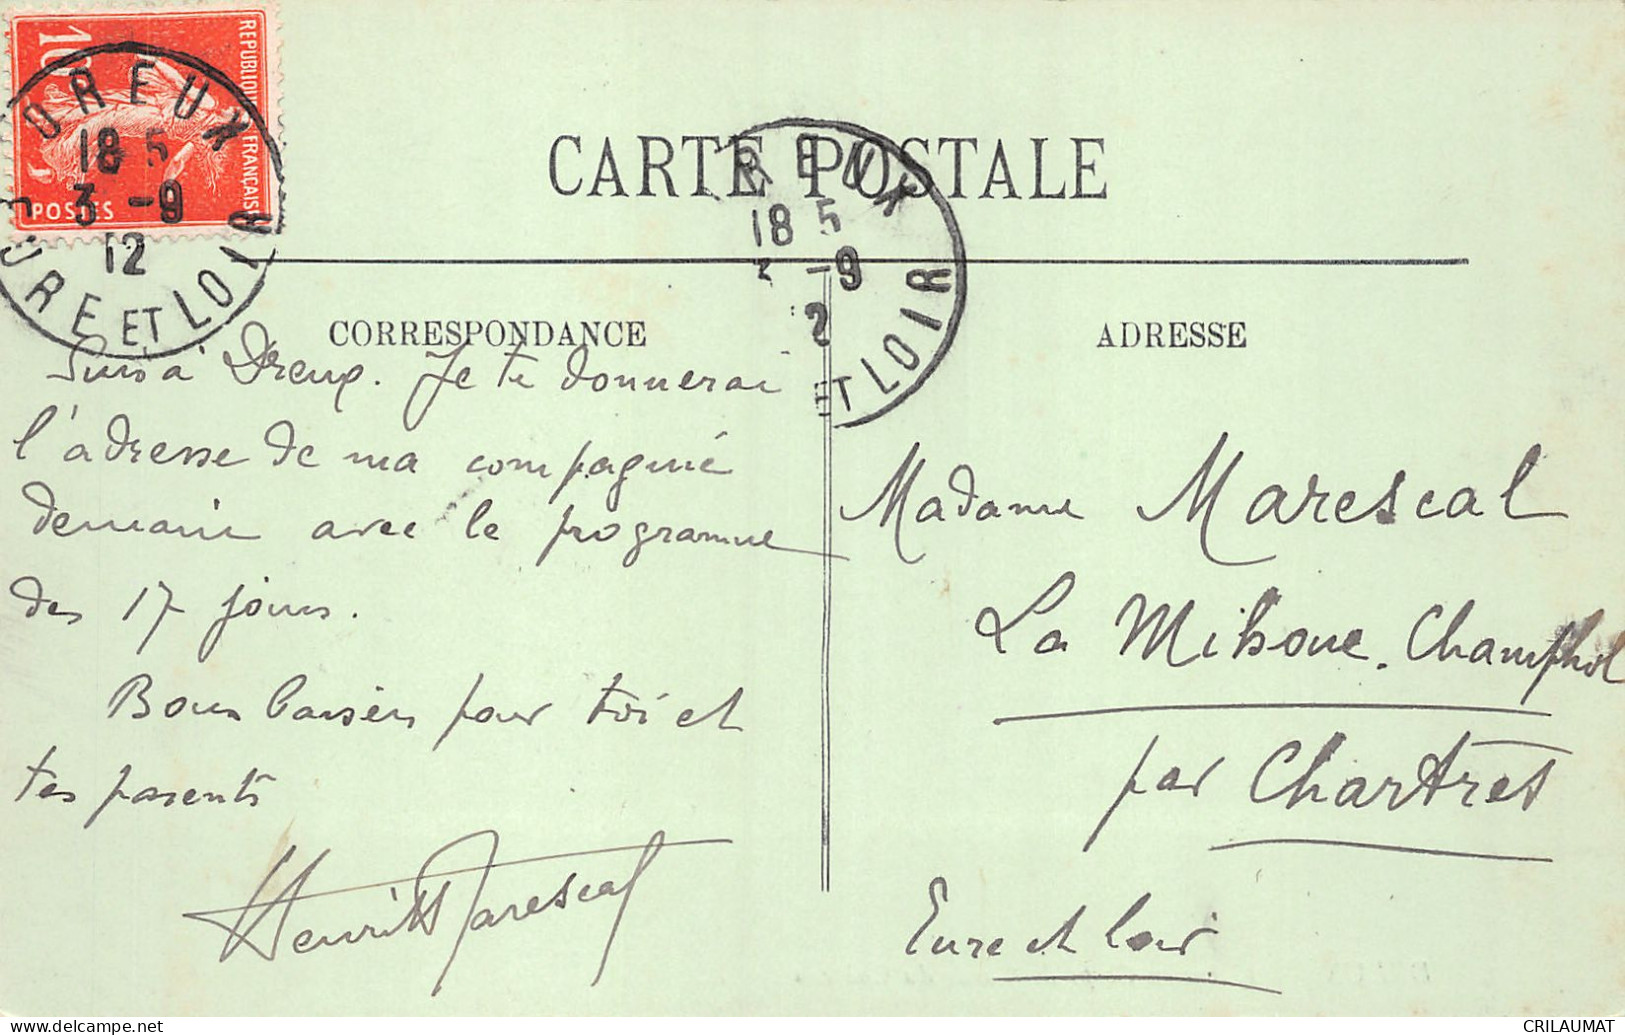 REPUBLIQUE FRANCAISE
10
POSTES
DREUX
18 5
3 -9
12
EURE ET LOIR
CARTE POSTALE
REUX
18 5
3 -9
2
ET LOIR
CORRESPONDANCE
Suis à Dreux. Je te donnerai
l'adresse de ma compagnie
demain avec le programme
des 17 jours.
Bons baisers pour toi et
tes parents
Henri Marescal
ADRESSE
Madame Marescal
La Mihoue. Champhol
par Chartres
Eure et Loir
CRILAUMAT